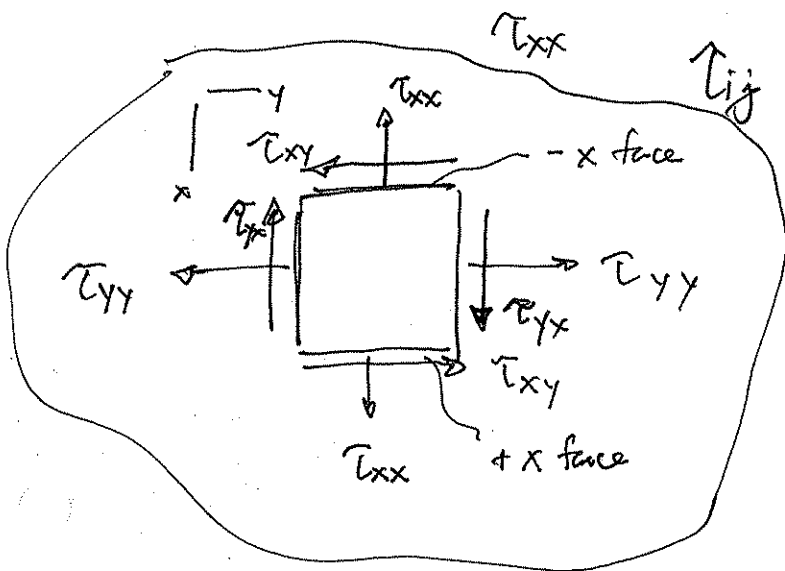 τxx
τij
y
x
τxx
τxy
- x face
τyx
τyy
τyy
τyx
τxy
τxx
+ x face